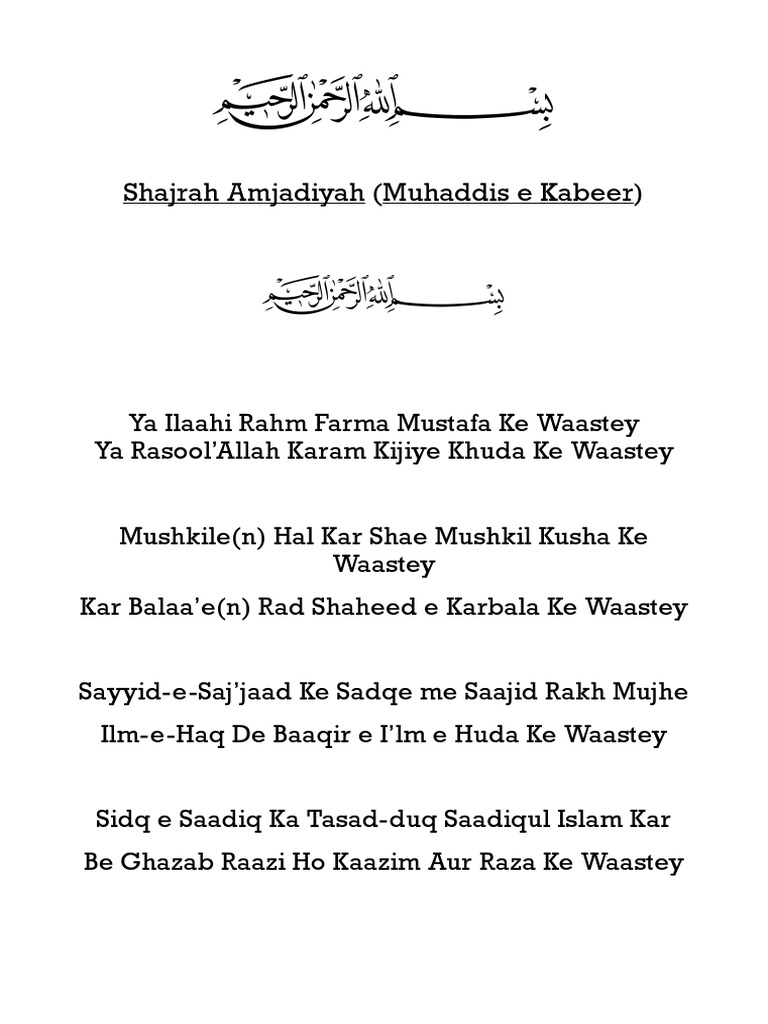 بِسْمِ اللهِ الرَّحْمٰنِ الرَّحِيْمِ
Shajrah Amjadiyah (Muhaddis e Kabeer)
بِسْمِ اللهِ الرَّحْمٰنِ الرَّحِيْمِ
Ya Ilaahi Rahm Farma Mustafa Ke Waastey
Ya Rasool’Allah Karam Kijiye Khuda Ke Waastey
Mushkile(n) Hal Kar Shae Mushkil Kusha Ke
Waastey
Kar Balaa’e(n) Rad Shaheed e Karbala Ke Waastey
Sayyid-e-Saj’jaad Ke Sadqe me Saajid Rakh Mujhe
Ilm-e-Haq De Baaqir e I’lm e Huda Ke Waastey
Sidq e Saadiq Ka Tasad-duq Saadiqul Islam Kar
Be Ghazab Raazi Ho Kaazim Aur Raza Ke Waastey